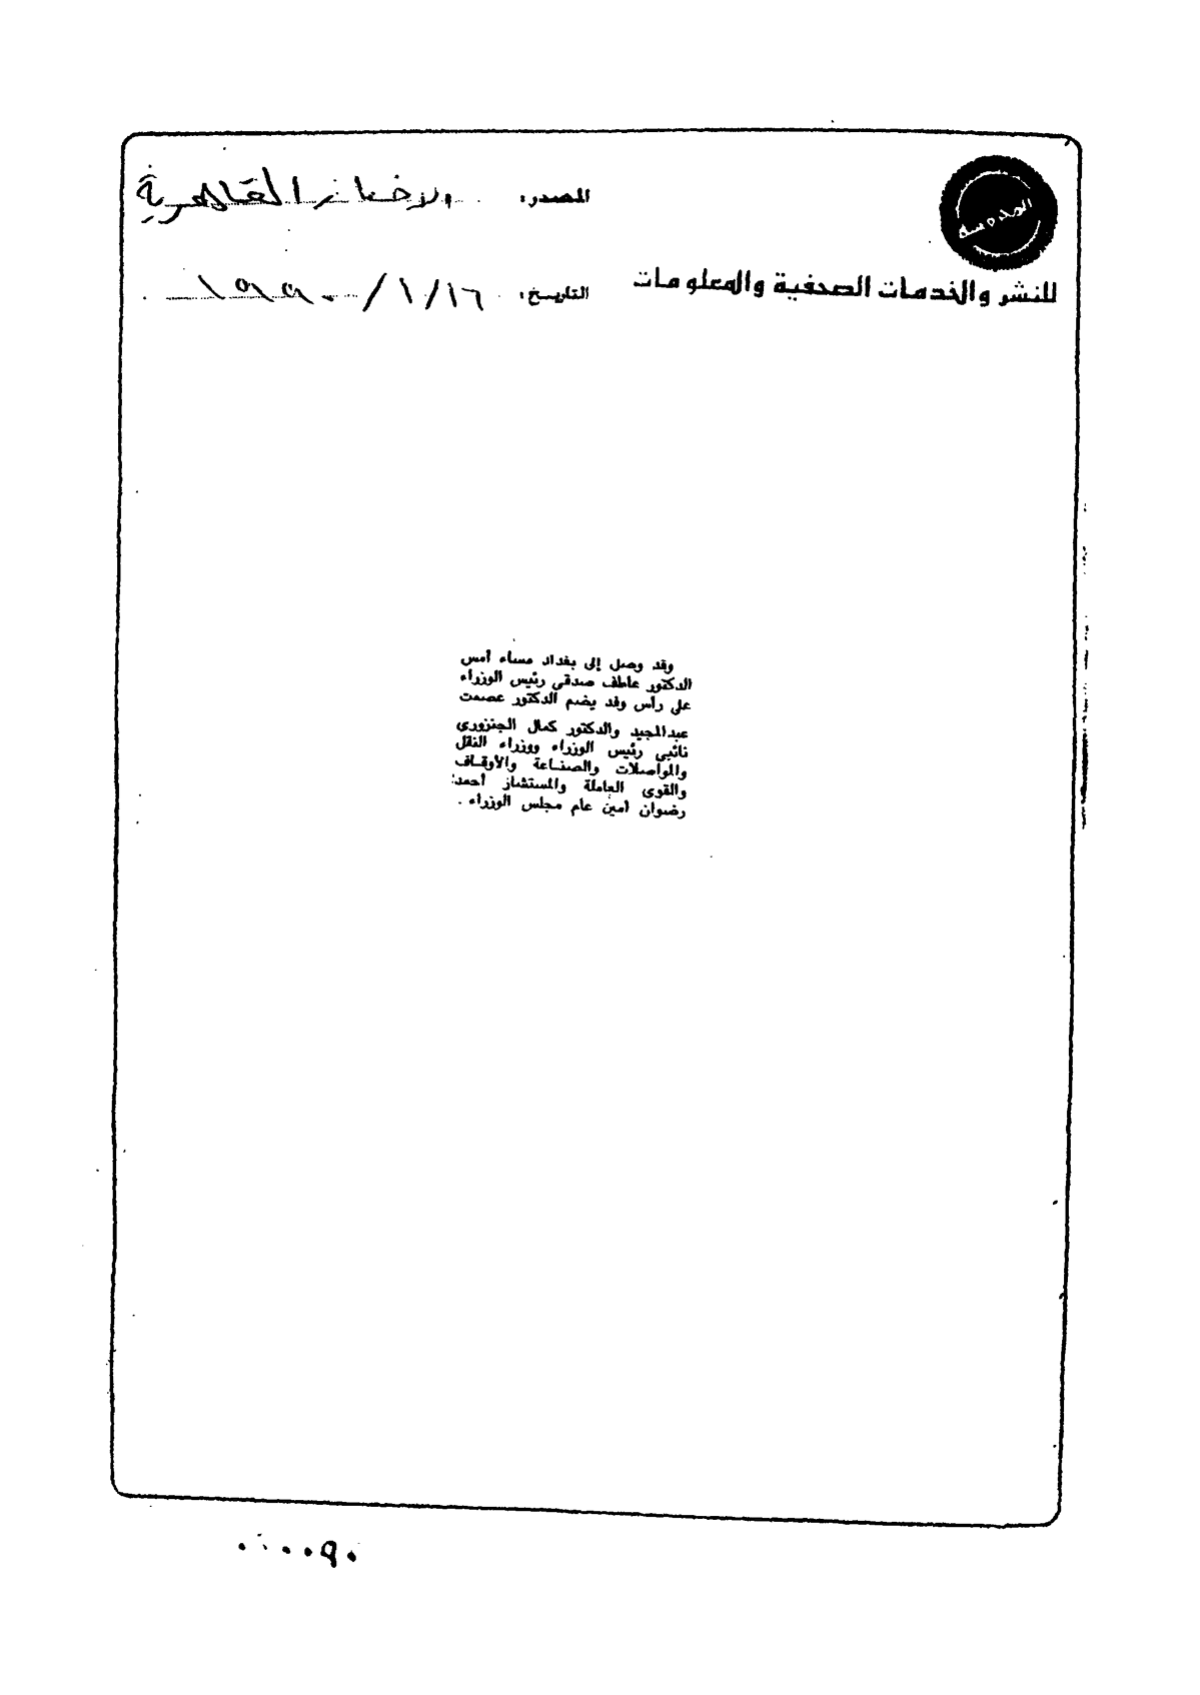 المدوسة
للنشر والخدمات الصحفية والمعلومات
المصدر: الأخبار القاهرية
التاريخ: ١٦/ ١/ ١٩٩٠
وقد وصل إلى بغداد مساء أمس
الدكتور عاطف صدقى رئيس الوزراء
على رأس وفد يضم الدكتور عصمت
عبدالمجيد والدكتور كمال الجنزورى
نائبى رئيس الوزراء ووزراء النقل
والمواصلات والصناعة والأوقاف
والقوى العاملة والمستشار أحمد
رضوان أمين عام مجلس الوزراء .